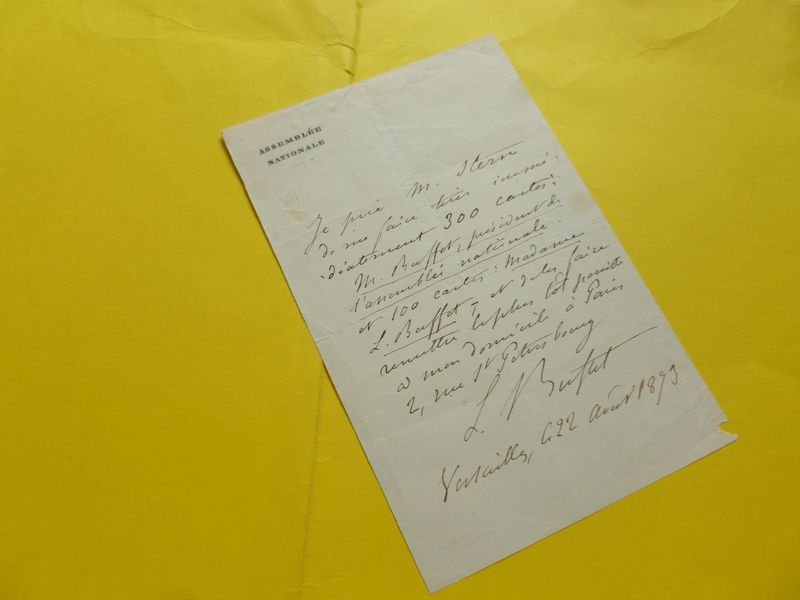 ASSEMBLÉE
NATIONALE
Je prie M. Stern
de me faire tirer immé-
diatement 300 cartes:
M. Buffet, président de
l'assemblée nationale
et 100 cartes: Madame
L. Buffet, et de les faire
remettre le plus tôt possible
à mon domicile à Paris
2, rue St Petersbourg
L. Buffet
Versailles, le 22 Août 1873